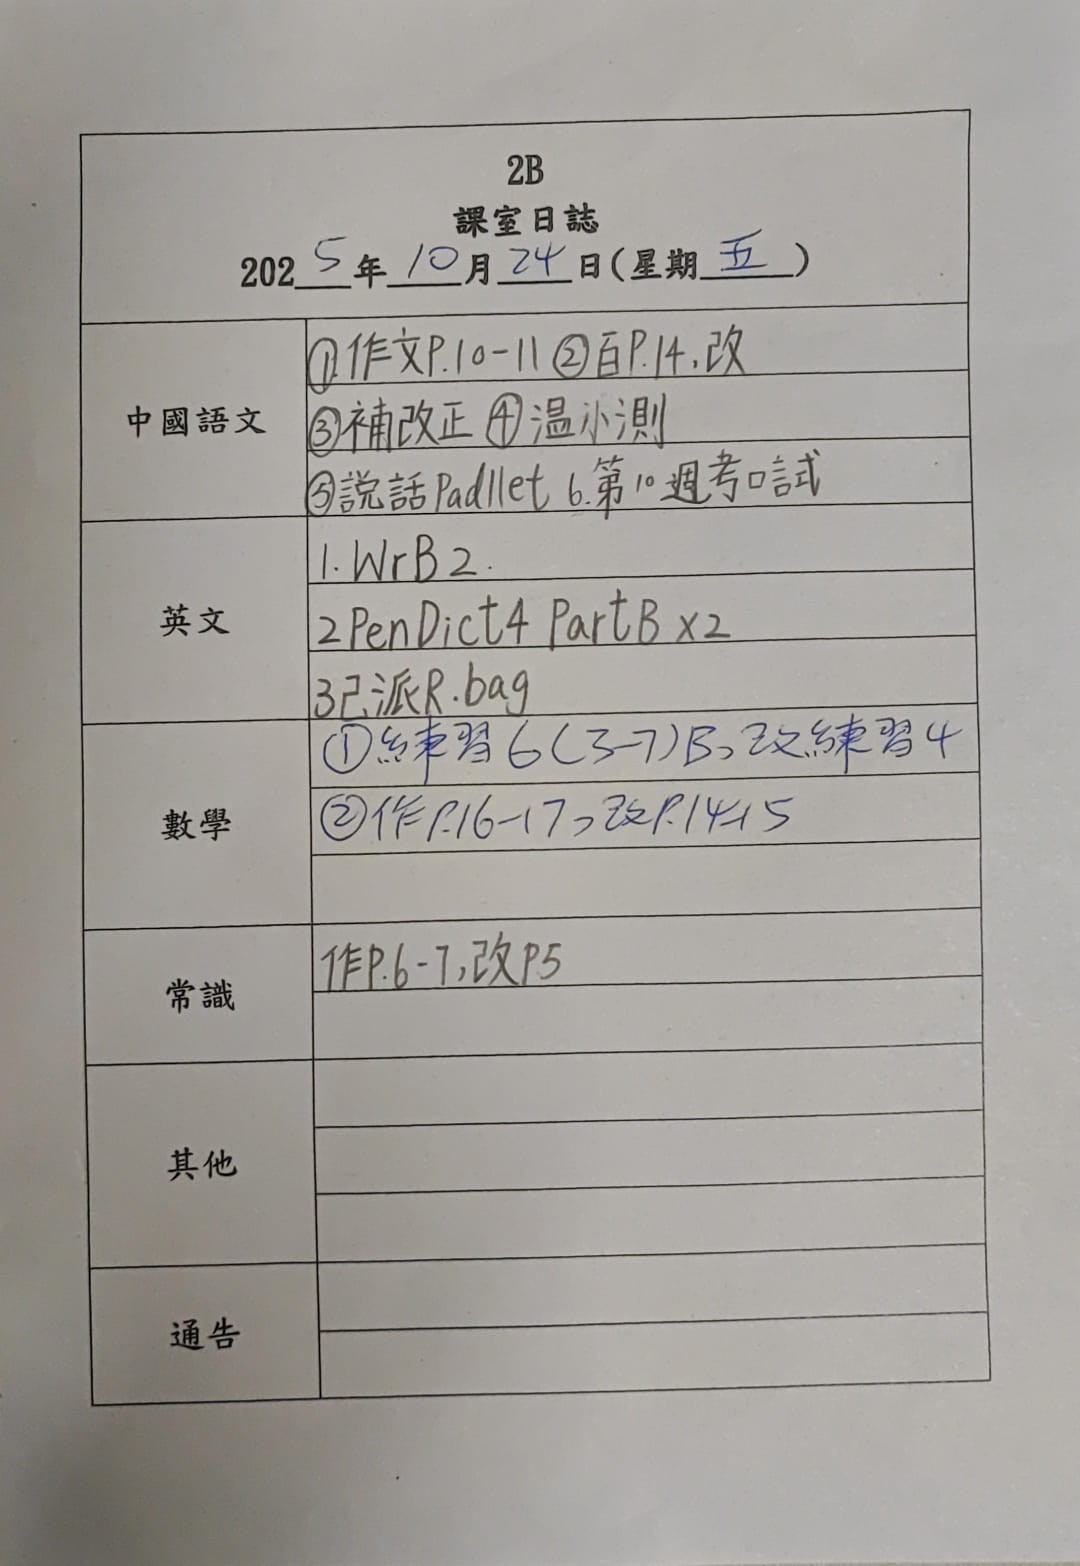 2B
課室日誌
2025年10月24日(星期五)
中國語文
①作文P.10-11 ②百P.14,改
③補改正 ④温小測
⑤説話Padllet 6.第10週考口試
英文
1. WrB 2.
2 PenDict4 PartB x2
3已派R.bag
數學
①練習6(3-7)B,改練習4
②作P.16-17,改P.14-15
常識
作P.6-7,改P5
其他
通告